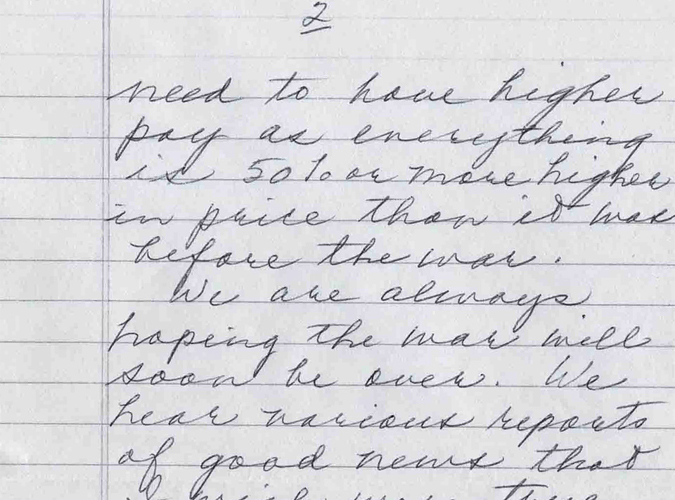 2
need to have higher
pay as everything
is 50% or more higher
in price than it was
before the war.
We are always
hoping the war will
soon be over. We
hear various reports
of good news that
I wish were true